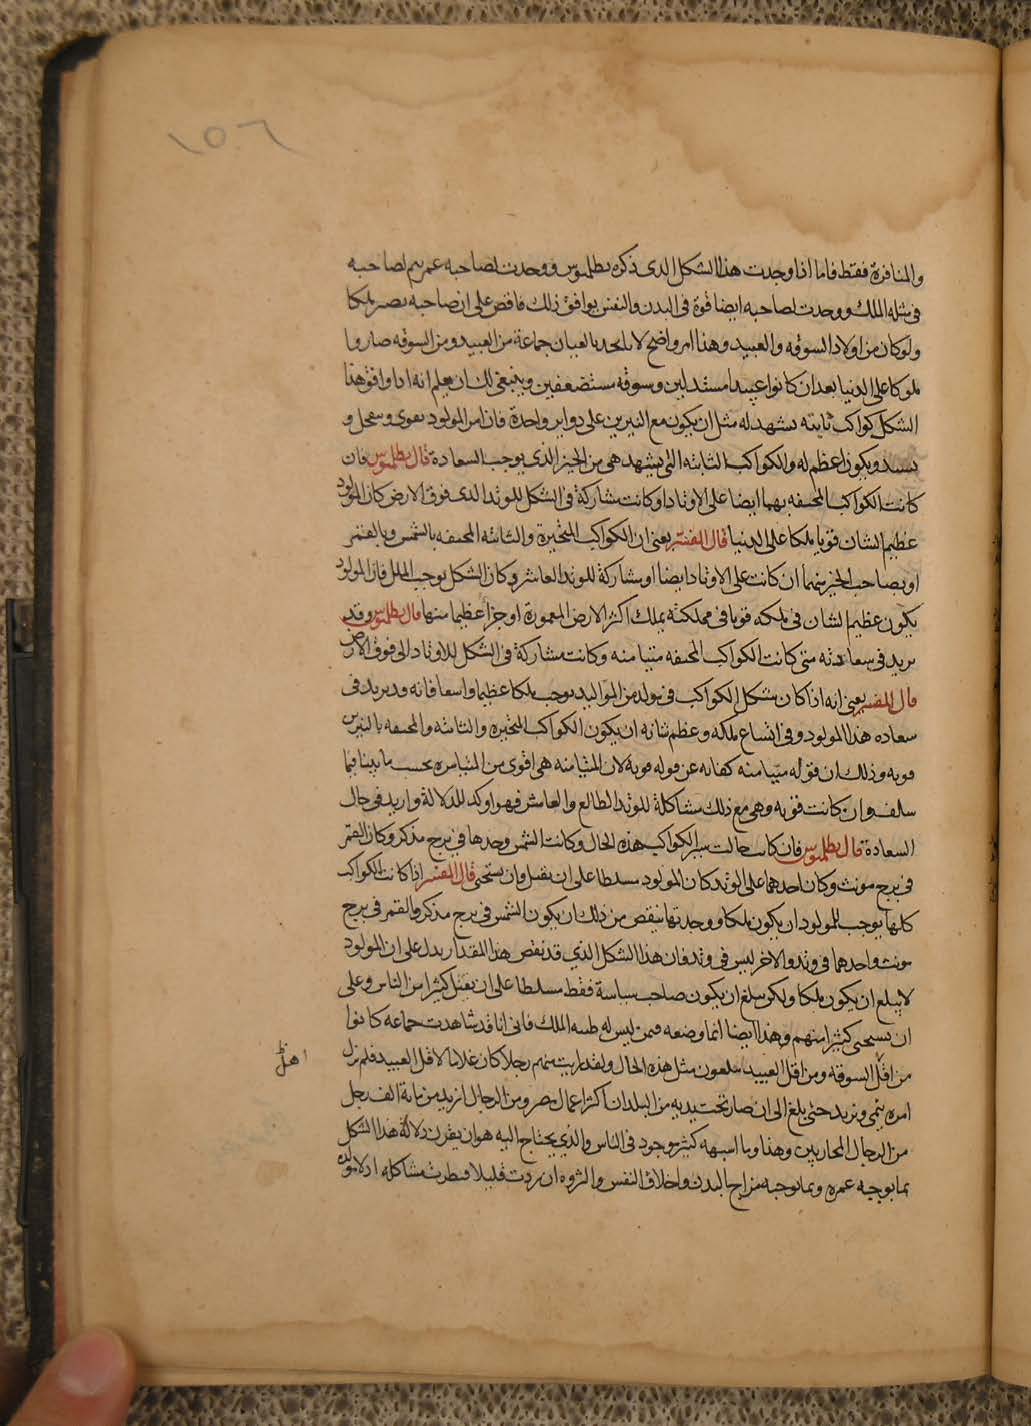 ١٥٦
والمنافرة فقط فاما اذا وجدت هذا الشكل الذى ذكره بطلميوس ووجدت لصاحبه عمر يتم لصاحبه
فى مثله الملك ووجدت لصاحبه ايضا قوة فى البدن والنفس يوافق ذلك فاقض على ان صاحبه يصير ملكا
ولو كان من اولاد السوقه والعبيد وهذا امر واضح لا بالعيان جماعة من العبيد ومن السوقه صاروا
ملوكا على الدنيا بعد ان كانوا عبيدا مستذلين وسوقة مستضعفين وينبغى لك ان يعلم انه اذا وافق هذا
الشكل كواكب ثابته يشهد له مثل ان يكون مع النيرين على دواير واحدة فان امر المولود يقوى و و
ويكون اعظم له والكواكب الثابته التى يشهد هى من الحيز الذى يوجب السعادة قال بطلميوس فان
كانت الكواكب المحتفه بهما ايضا على الاوتاد او كانت مشاركة فى الشكل للوتد الذى فوق الارض كان المولود
عظيم الشان قويا ملكا على الدنيا قال المفسر يعنى ان الكواكب المتحيرة والثابته المحتفه بالشمس وبالقمر
او بصاحب الحيز منهما ان كانت على الاوتاد ايضا او مشاركة للوتد العاشر وكان الشكل يوجب الملك فان المولود
يكون عظيم الشان فى ملكه قويا فى مملكته يملك اكثر الارض المعمورة او جزأ عظيما منها قال بطلميوس وقد
يزيد فى سعادته متى كانت الكواكب المحتفه متيامنه وكانت مشاركة فى الشكل للاوتاد التى فوق الارض
قال المفسر يعنى انه اذا كان شكل الكواكب فى مولد من المواليد يوجب ملكا عظيما واسعا فانه قد يزيد فى
سعاده هذا المولود وفى اتساع ملكه وعظم شانه ان يكون الكواكب المتحيره والثابته والمحتفه بالنيرين
قويه وذلك ان قوله متيامنه كفايه عن قوله قويه لان المتيامنه هى اقوى من المتياسره بحسب ما بينا فيما
سلف وان كانت قويه وهى مع ذلك مشاكلة للوتد الطالع والعاشر فهو اوكد للدلالة وازيد فى حال
السعادة قال بطلميوس فان كانت حالات ساير الكواكب هذه الحال وكانت الشمس وحدها فى برج مذكر وكان القمر
فى برج مونث وكان احدهما على الوتد كان المولود مسلطا على ان يقتل وان يستحيى قال المفسر اذا كانت الكواكب
كلها يوجب للمولود ان يكون ملكا ووجدتها ينقص من ذلك ان يكون الشمس فى برج مذكر والقمر فى برج
مونث واحدهما فى وتد والاخر ليس فى وتد فان هذا الشكل الذي قد نقص هذا المقدار يدل على ان المولود
لا يبلغ ان يكون ملكا ولكن يبلغ ان يكون صاحب سياسة فقط مسلطا على ان يقتل كثيرا من الناس وعلى
ان يستحيى كثيرا منهم وهذا ايضا انما وضعه فمن ليس له الملك فانى انا قد شاهدت جماعه كانوا
من اقل السوقه ومن اقل العبيد يبلغون مثل هذه الحال ولقد رايت منهم رجلا كان غلاما لاقل العبيد فلم يزل
امره ينمى ويزيد حتى بلغ الى ان صار تحت يديه من البلدان اكثر اعمال مصر ومن الرجال ازيد من مائة الف رجل
من الرجال المحاربين وهذا وما اشبهه كثير موجود فى الناس والذي يحتاج اليه هو ان يقرن دلالة هذا الشكل
بما يوجبه عمره وبما يوجبه مزاج البدن واخلاق النفس والثروه ان زدت قليلا مشاكله